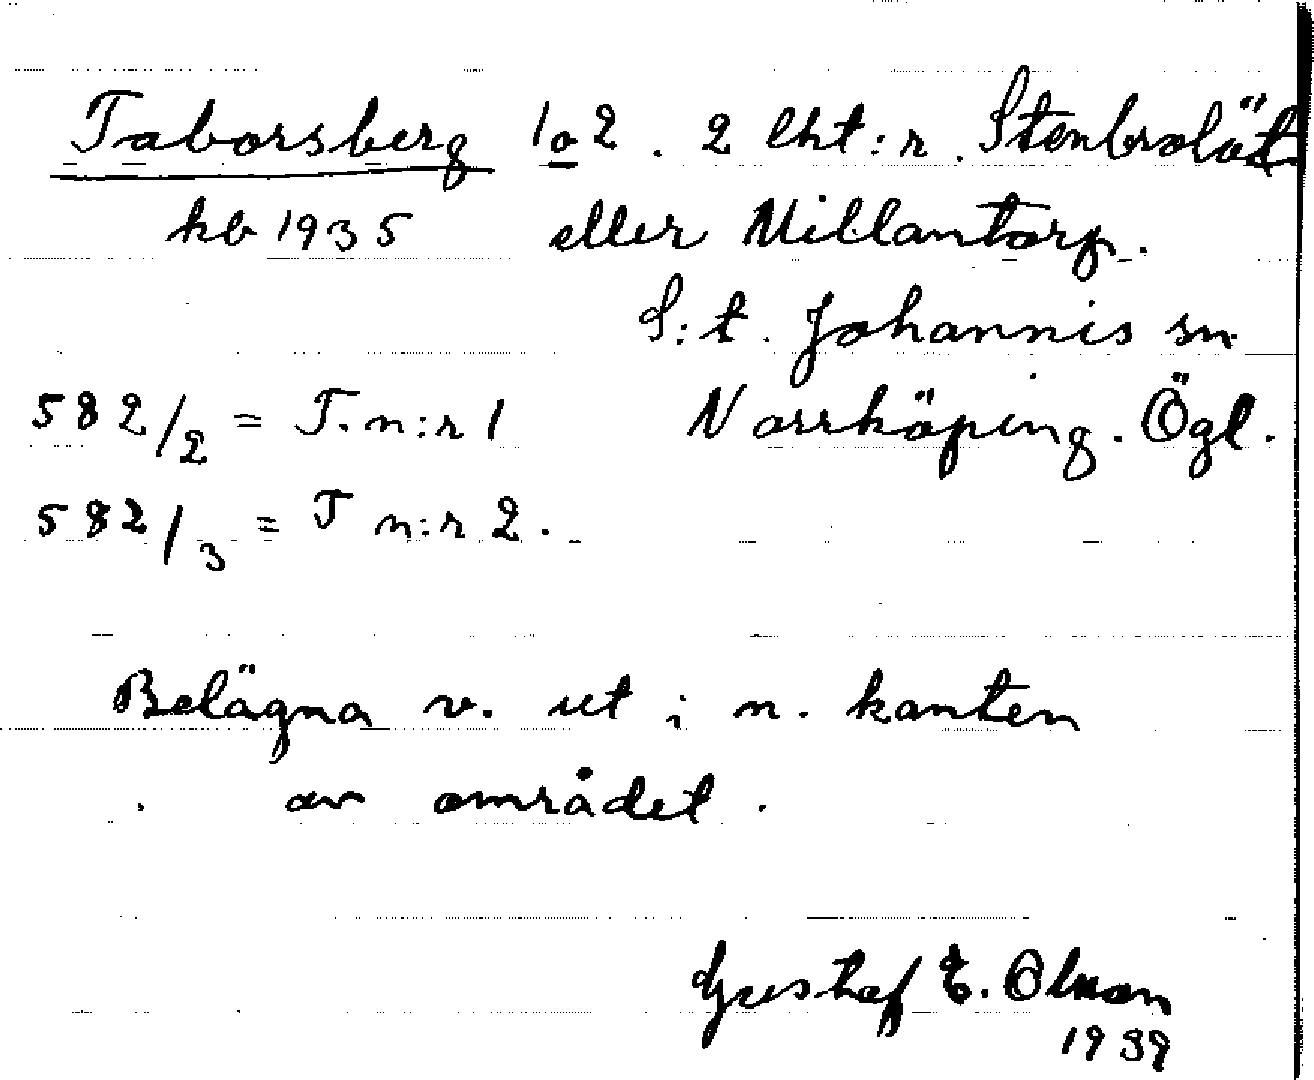 Taborsberg 1 o 2. 2 lht:r. Stenbrolöt
kb 1935 eller Millantorp.
S:t. Johannis sn
582/2 = T. n:r 1 Norrköping. Ögl.
582/3 = T n:r 2.
Belägna v. ut i n. kanten
av området.
Gustaf E. Olson
1939